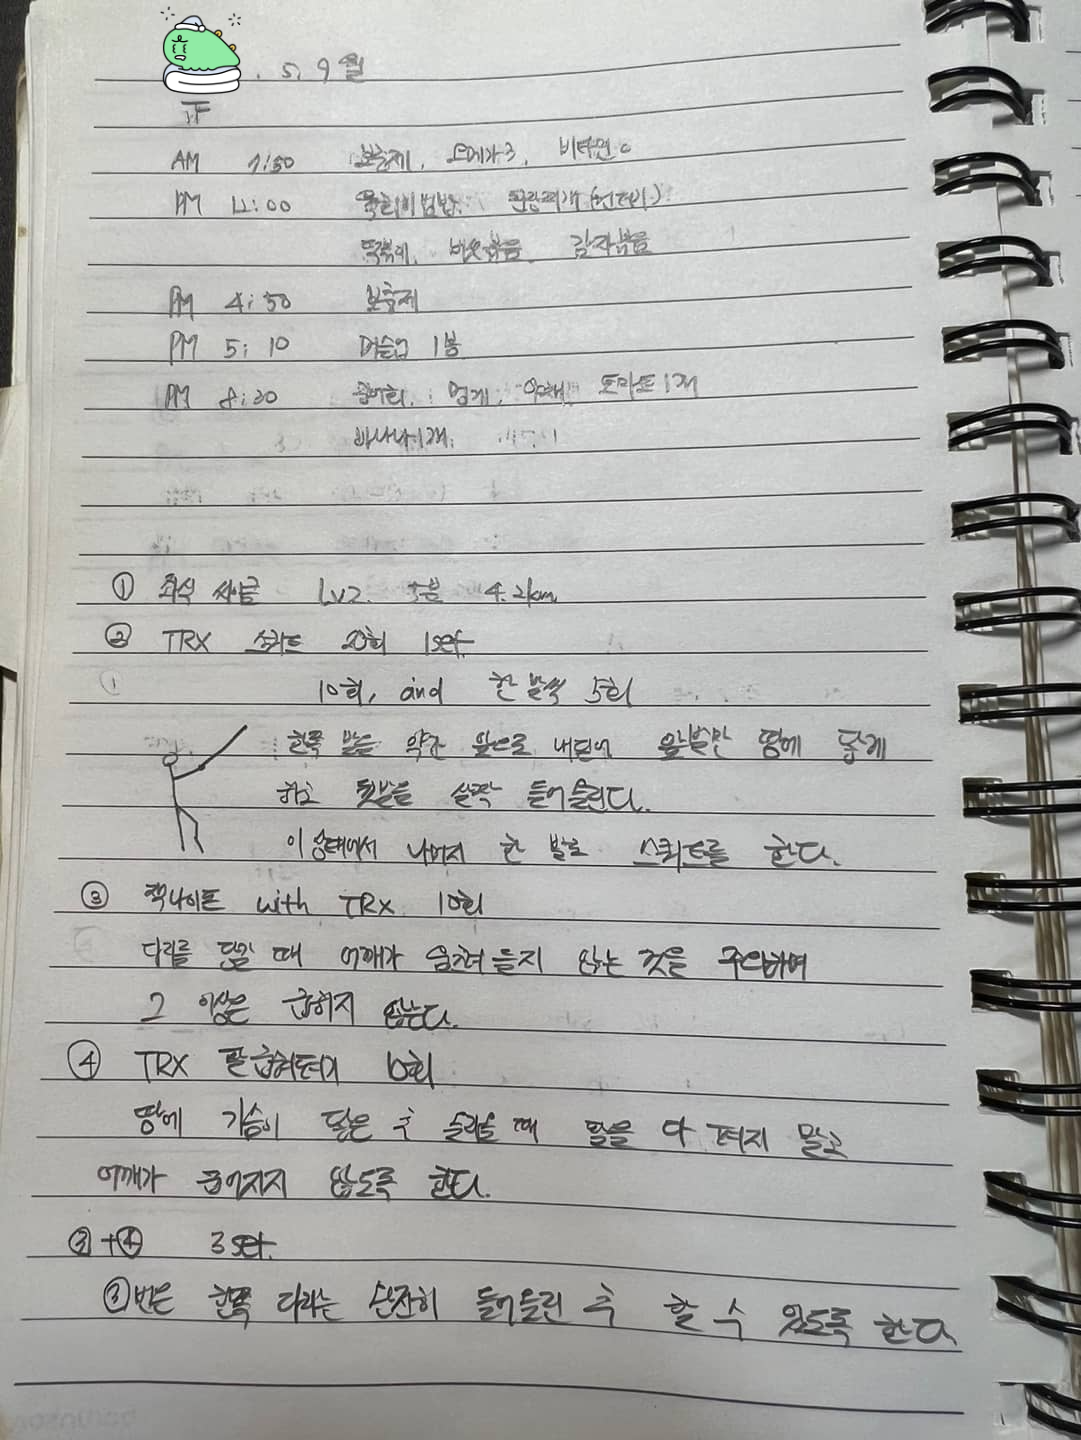 . 5. 9 월
正
AM 7:50 보충제, 오메가3, 비타민c
PM 12:00 된장찌개(건더기)
버섯볶음, 감자볶음
PM 4:50 보충제
PM 5:10 머슬업 1봉
PM 8:20 숭어회, 멍게, 야채, 토마토1개
바나나1개.
① 좌식 싸이클 Lv2. 5분 4.2km
② TRX 스쿼트 20회 1set
10회, and 한 발씩 5회
한쪽 발을 약간 앞으로 내딛어 앞꿈만 땅에 닿게
하고 뒷발을 살짝 들어올린다.
이 상태에서 나머지 한 발로 스쿼트를 한다.
③ 잭나이프 with TRX 10회
다리를 당길 때 어깨가 움츠려 들지 않는 것을 주의하며
그 이상은 굽히지 않는다.
④ TRX 팔굽혀펴기 10회
땅에 가슴이 닿은 후 올라올 때 팔을 다 펴지 말고
어깨가 굽어지지 않도록 한다.
③+④ 3set.
②번은 한쪽 다리는 완전히 들어올린 후 할 수 있도록 한다.